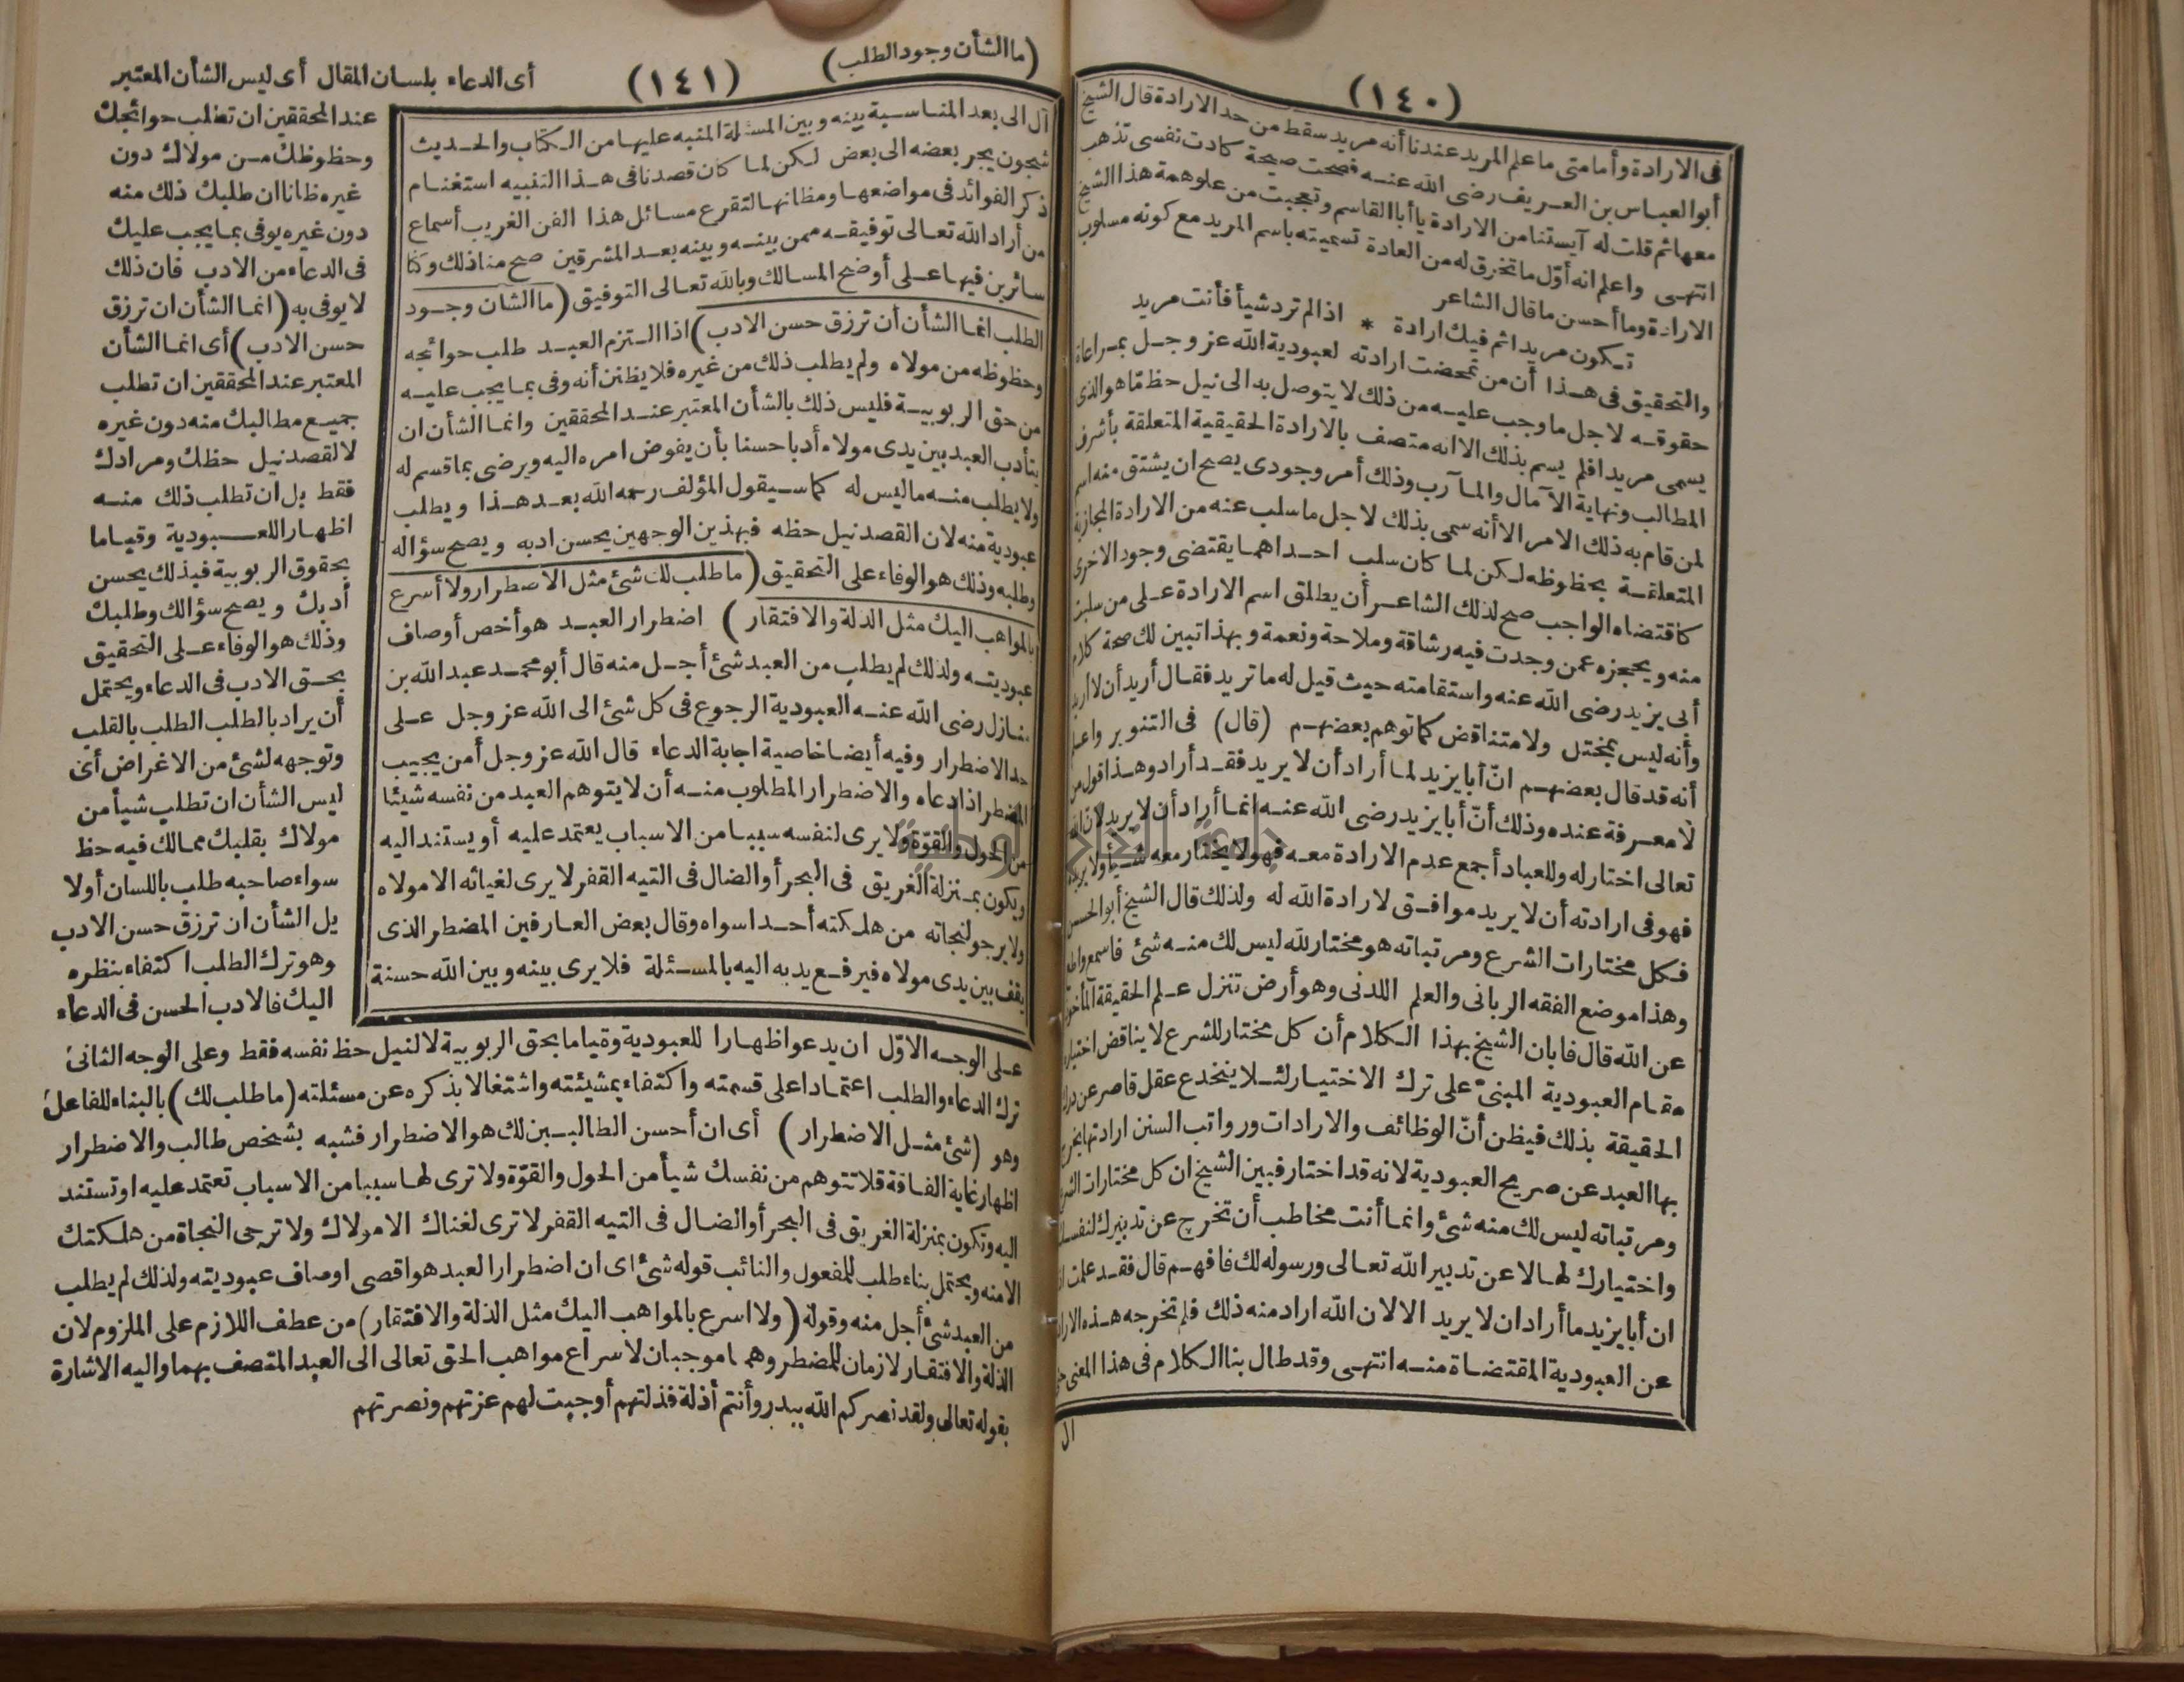 (١٤٠)
فى الارادة وأما متى ما علم المريد عندنا أنه مريد سقط من حد الارادة قال الشيخ
أبو العباس بن العريف رضى الله عنه فصحت صيحة كادت نفسى تذهب
معها ثم قلت له آيستنا من الارادة يا أبا القاسم وتعجبت من علو همة هذا الشيخ
انتهى واعلم انه أوّل ما تخرق له من العادة تسميته باسم المريد مع كونه مسلوب
الارادة وما أحسن ما قال الشاعر
تكون مريدا ثم فيك ارادة * اذا لم ترد شيأ فأنت مريد
والتحقيق فى هذا أن من تمحضت ارادته لعبودية الله عز وجل بمراعاة
حقوقه لاجل ما وجب عليه من ذلك لا يتوصل به الى نيل حظ مّا هو الذى
يسمى مريدا فلم يسم بذلك الا انه متصف بالارادة الحقيقية المتعلقة بأشرف
المطالب ونهاية الآمال والمآرب وذلك أمر وجودى يصح ان يشتق منه اسم
لمن قام به ذلك الامر الا أنه سمى بذلك لاجل ما سلب عنه من الارادة المجازية
المتعلقة بحظوظه لكن لما كان سلب احداهما يقتضى وجود الاخرى
كاقتضاه الواجب صح لذلك الشاعر أن يطلق اسم الارادة على من سلبت
منه ويحجزه عمن وجدت فيه رشاقة وملاحة ونعمة وبهذا تبين لك صحة كلام
أبى يزيد رضى الله عنه واستقامته حيث قيل له ما تريد فقال أريد أن لا أريد
وأنه ليس بمختل ولا متناقض كما توهم بعضهم (قال) فى التنوير واعلم
أنه قد قال بعضهم انّ أبا يزيد لما أراد أن لا يريد فقد أراد وهذا قول من
لا معرفة عنده وذلك أنّ أبا يزيد رضى الله عنه انما أراد أن لا يريد لان الله
تعالى اختار له وللعباد أجمع عدم الارادة معه فهو لا يختار معه شيأ ولا يريده
فهو فى ارادته أن لا يريد موافق لارادة الله له ولذلك قال الشيخ أبو الحسن
فكل مختارات الشرع ومرتباته هو مختار لله ليس لك منه شئ فاسمع واطع
وهذا موضع الفقه الربانى والعلم اللدنى وهو أرض تنزل علم الحقيقة المأخوذ
عن الله قال فابان الشيخ بهذا الكلام أن كل مختار للشرع لا يناقض اختياره
مقام العبودية المبنىّ على ترك الاختيار لئلا ينخدع عقل قاصر عن درك
الحقيقة بذلك فيظن أنّ الوظائف والارادات ورواتب السنن ارادتها يخرج
بها العبد عن صريح العبودية لانه قد اختار فبين الشيخ ان كل مختارات الشرع
ومرتباته ليس لك منه شئ وانما أنت مخاطب أن تخرج عن تدبيرك لنفسك
واختيارك لها لا عن تدبير الله تعالى ورسوله لك فافهم قال فقد علمت اذا
ان أبا يزيد ما أراد ان لا يريد الا لان الله اراد منه ذلك فلم تخرجه هذه الارادة
عن العبودية المقتضاة منه انتهى وقد طال بنا الكلام فى هذا المعنى حتى
ال
(ما الشأن وجود الطلب)
(١٤١)
آل الى بعد المناسبة بينه وبين المسئلة المنبه عليها من الكتاب والحديث
شجون يجر بعضه الى بعض لكن لما كان قصدنا فى هذا التنبيه استغنام
ذكر الفوائد فى مواضعها ومظانها لتقرع مسائل هذا الفن الغريب أسماع
من أراد الله تعالى توفيقه ممن بينه وبينه بعد المشرقين صح منا ذلك وكنا
سائرين فيها على أوضح المسالك وبالله تعالى التوفيق (ما الشان وجود
الطلب انما الشأن أن ترزق حسن الادب) اذا التزم العبد طلب حوائجه
وحظوظه من مولاه ولم يطلب ذلك من غيره فلا يظنن أنه وفى بما يجب عليه
من حق الربوبية فليس ذلك بالشأن المعتبر عند المحققين وانما الشأن ان
يتأدب العبد بين يدى مولاه أدبا حسنا بأن يفوض امره اليه ويرضى بما قسم له
ولا يطلب منه ما ليس له كما سيقول المؤلف رحمه الله بعد هذا ويطلب
عبودية منه لان القصد نيل حظه فبهذين الوجهين يحسن ادبه ويصح سؤاله
وطلبه وذلك هو الوفاء على التحقيق (ما طلب لك شئ مثل الاضطرار ولا أسرع
بالمواهب اليك مثل الذلة والافتقار) اضطرار العبد هو أخص أوصاف
عبوديته ولذلك لم يطلب من العبد شئ أجل منه قال أبو محمد عبد الله بن
منازل رضى الله عنه العبودية الرجوع فى كل شئ الى الله عز وجل على
حد الاضطرار وفيه أيضا خاصية اجابة الدعاء قال الله عز وجل أمن يجيب
المضطر اذا دعاه والاضطرار المطلوب منه أن لا يتوهم العبد من نفسه شيئا
من الحول والقوّة ولا يرى لنفسه سببا من الاسباب يعتمد عليه أو يستند اليه
ويكون بمنزلة الغريق فى البحر أو الضال فى التيه القفر لا يرى لغياثه الا مولاه
ولا يرجو لنجاته من هلكته أحدا سواه وقال بعض العارفين المضطر الذى
يقف بين يدى مولاه فيرفع يديه اليه بالمسئلة فلا يرى بينه وبين الله حسنة
أى الدعاء بلسان المقال أى ليس الشأن المعتبر
عند المحققين ان تطلب حوائجك
وحظوظك من مولاك دون
غيره ظانا ان طلبك ذلك منه
دون غيره يوفى بما يجب عليك
فى الدعاء من الادب فان ذلك
لا يوفى به (انما الشأن ان ترزق
حسن الادب) أى انما الشأن
المعتبر عند المحققين ان تطلب
جميع مطالبك منه دون غيره
لا لقصد نيل حظك ومرادك
فقط بل ان تطلب ذلك منه
اظهارا للعبودية وقياما
بحقوق الربوبية فبذلك يحسن
أدبك ويصح سؤالك وطلبك
وذلك هو الوفاء على التحقيق
بحق الادب فى الدعاء ويحتمل
أن يراد بالطلب الطلب بالقلب
وتوجهه لشئ من الاغراض أى
ليس الشأن ان تطلب شيأ من
مولاك بقلبك مما لك فيه حظ
سواء صاحبه طلب باللسان أو لا
بل الشأن ان ترزق حسن الادب
وهو ترك الطلب اكتفاء بنظره
اليك فالادب الحسن فى الدعاء
على الوجه الاوّل ان يدعو اظهارا للعبودية وقياما بحق الربوبية لا لنيل حظ نفسه فقط وعلى الوجه الثانى
ترك الدعاء والطلب اعتمادا على قسمته واكتفاء بمشيئته واشتغالا بذكره عن مسئلته (ما طلب لك) بالبناء للفاعل
وهو (شئ مثل الاضطرار) أى ان أحسن الطالبين لك هو الاضطرار فشبه بشخص طالب والاضطرار
اظهار غاية الفاقة فلا تتوهم من نفسك شيأ من الحول والقوّة ولا ترى لها سببا من الاسباب تعتمد عليه او تستند
اليه وتكون بمنزلة الغريق فى البحر أو الضال فى التيه القفر لا ترى لغناك الا مولاك ولا ترجى النجاة من هلكتك
الا منه ويحتمل بناء طلب للمفعول والنائب قوله شئ اى ان اضطرار العبد هو اقصى اوصاف عبوديته ولذلك لم يطلب
من العبد شئ أجل منه وقوله (ولا اسرع بالمواهب اليك مثل الذلة والافتقار) من عطف اللازم على الملزوم لان
الذلة والافتقار لازمان للمضطر وهما موجبان لاسراع مواهب الحق تعالى الى العبد المتصف بهما واليه الاشارة
بقوله تعالى ولقد نصركم الله ببدر وأنتم أذلة فذلتهم أوجبت لهم عزتهم ونصرتهم
جامعة النجاح الوطنية